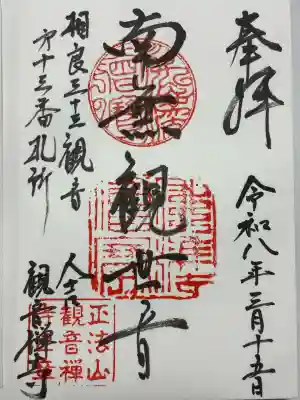 奉拝
令和八年三月十五日
南無観世音
相良三十三観音
第十三番札所
人吉
観音禅寺
正法山
観音禅